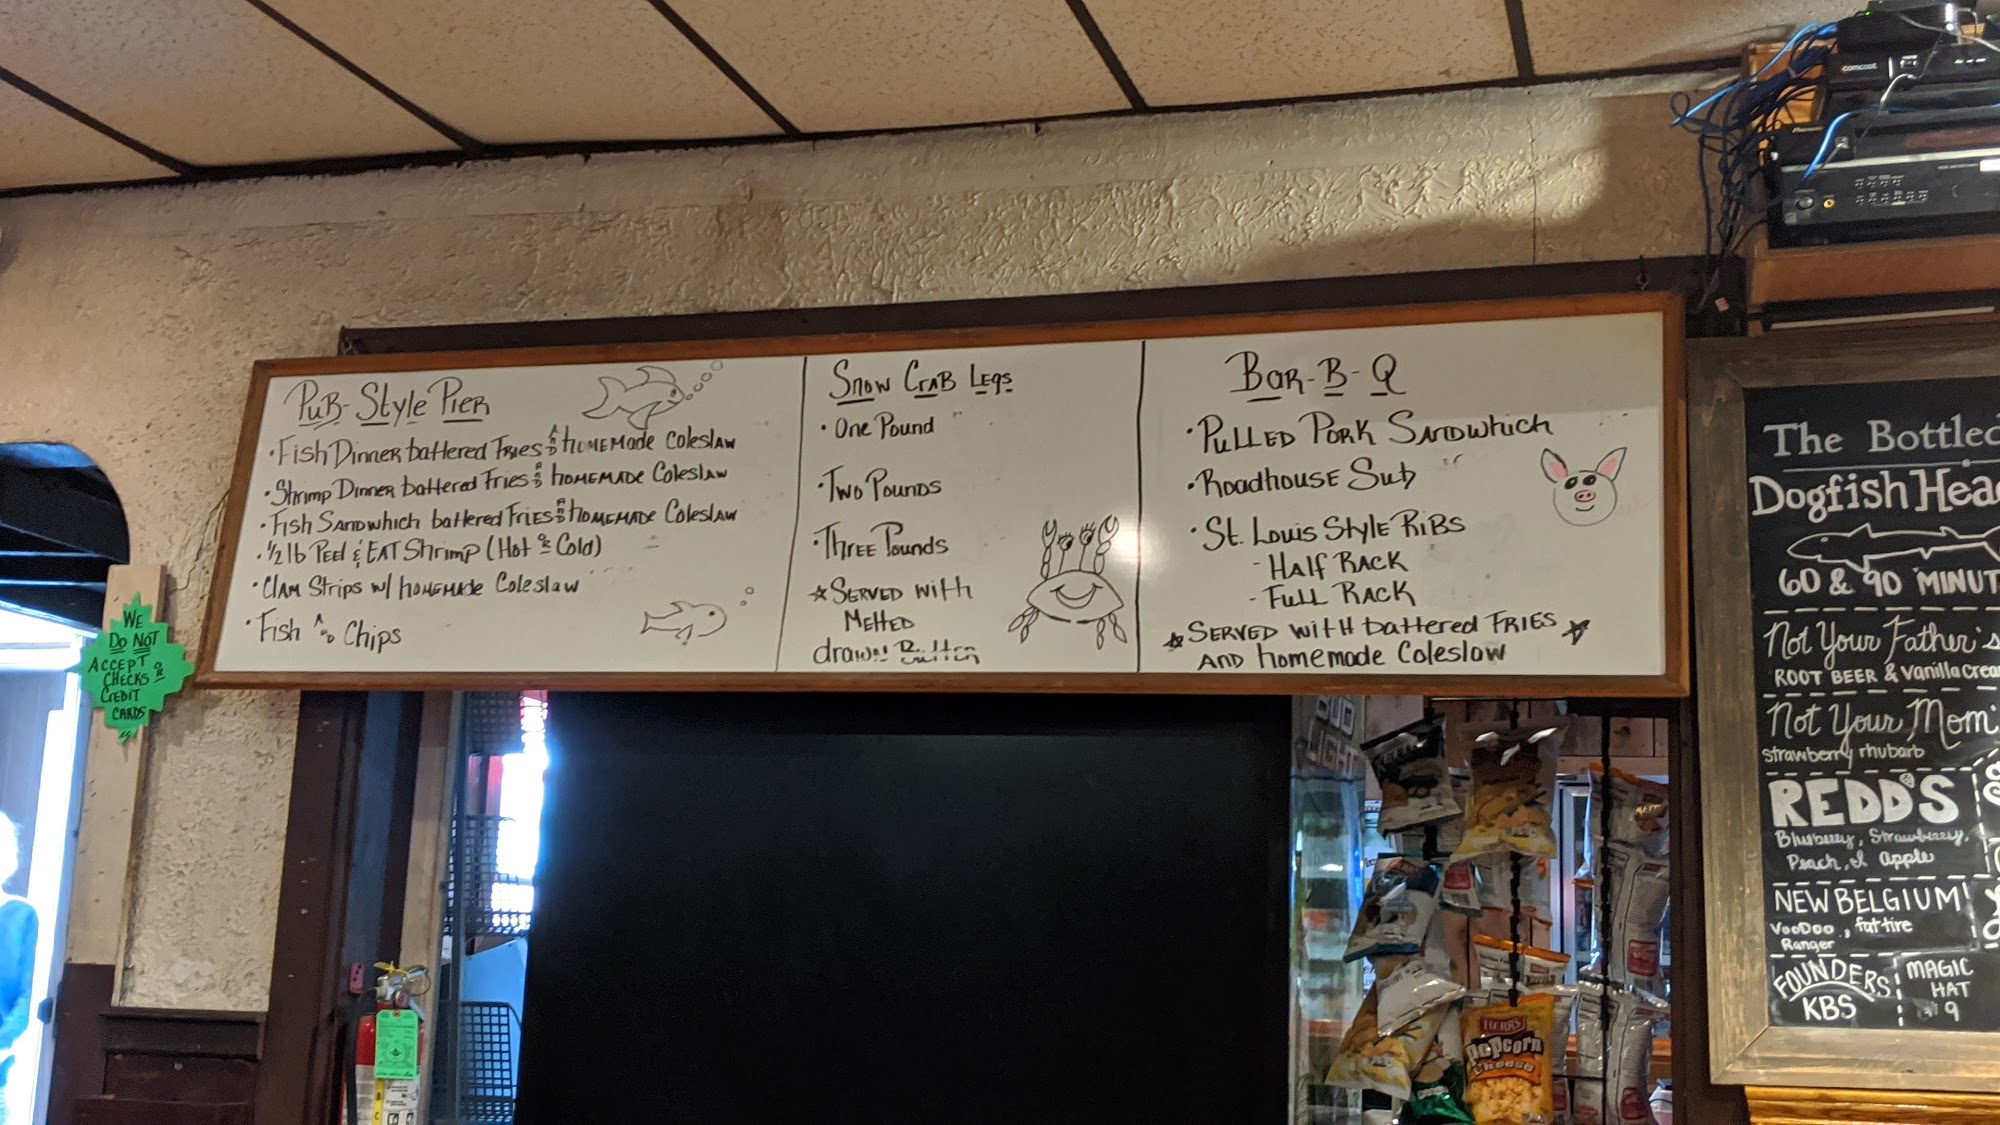 Pub-Style Pier
· Fish Dinner battered Fries AND homemade Coleslaw
· Shrimp Dinner battered Fries AND homemade Coleslaw
· Fish Sandwhich battered Fries AND homemade Coleslaw
· 1/2 lb Peel & EAT Shrimp (Hot OR Cold)
· Clam Strips w/ homemade Coleslaw
· Fish AND Chips
Snow Crab Legs
· One Pound
· Two Pounds
· Three Pounds
☆ Served with
Melted
drawn Butter
Bar-B-Q
· Pulled Pork Sandwhich
· Roadhouse Sub
· St. Louis Style Ribs
- Half Rack
- Full Rack
☆ Served with battered Fries ☆
AND homemade Coleslaw
WE
DO NOT
ACCEPT
CHECKS OR
CREDIT
CARDS
comcast
Pioneer
The Bottled
Dogfish Hea
60 & 90 MINUT
Not Your Father's
ROOT BEER & Vanilla Crea
Not Your Mom'
strawberry rhubarb
REDD'S
Blueberry, Strawberry,
Peach, & Apple
NEW BELGIUM
VooDoo, fat tire
Ranger
FOUNDERS
KBS
MAGIC
HAT
#9
BUD
LIGHT
HERR'S
Popcorn
Cheese